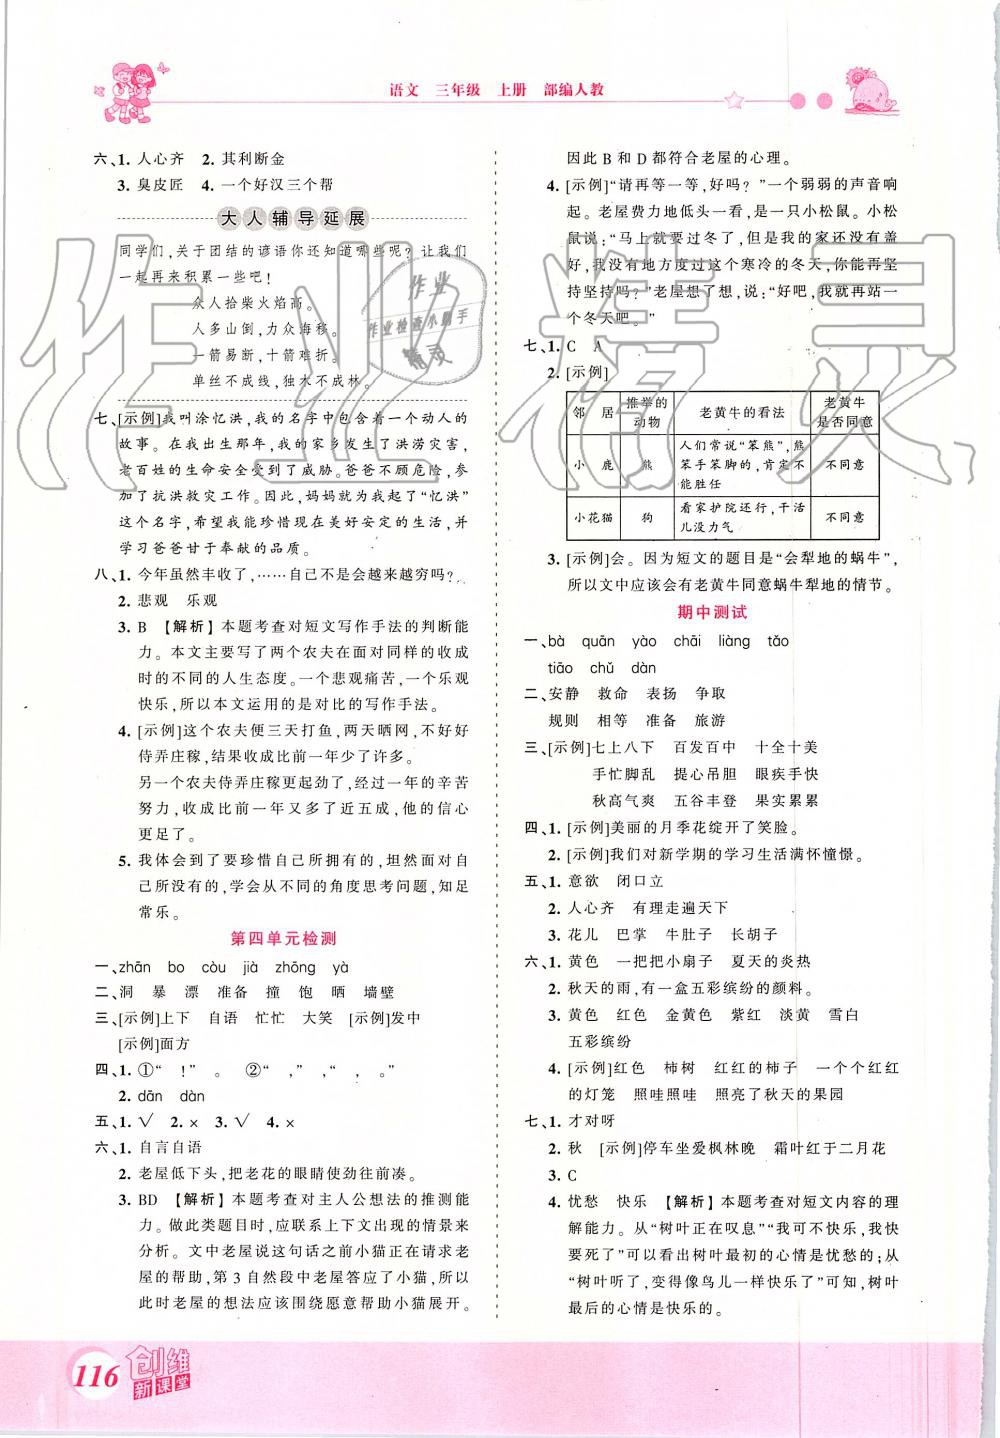 语文 三年级 上册 部编人教
六、1. 人心齐 2. 其利断金
3. 臭皮匠 4. 一个好汉三个帮
大人辅导延展
同学们,关于团结的谚语你还知道哪些呢？让我们
一起再来积累一些吧！
众人拾柴火焰高。
人多山倒,力众海移。
一箭易断,十箭难折。
单丝不成线,独木不成林。
七、[示例]我叫涂忆洪,我的名字中包含着一个动人的
故事。在我出生那年,我的家乡发生了洪涝灾害,
老百姓的生命安全受到了威胁。爸爸不顾危险,参
加了抗洪救灾工作。因此,妈妈就为我起了“忆洪”
这个名字,希望我能珍惜现在美好安定的生活,并
学习爸爸甘于奉献的品质。
八、1. 今年虽然丰收了,……自己不是会越来越穷吗？
2. 悲观 乐观
3. B 【解析】本题考查对短文写作手法的判断能
力。本文主要写了两个农夫在面对同样的收成
时的不同的人生态度。一个悲观痛苦,一个乐观
快乐,所以本文运用的是对比的写作手法。
4. [示例]这个农夫便三天打鱼,两天晒网,不好好
侍弄庄稼,结果收成比前一年少了许多。
另一个农夫侍弄庄稼更起劲了,经过一年的辛苦
努力,收成比前一年又多了近五成,他的信心
更足了。
5. 我体会到了要珍惜自己所拥有的,坦然面对自
己所没有的,学会从不同的角度思考问题,知足
常乐。
第四单元检测
一、zhān bo còu jià zhōng yà
二、洞 暴 漂 准备 撞 饱 晒 墙壁
三、[示例]上下 自语 忙忙 大笑 [示例]发中
[示例]面方
四、1. ①“ ！” 。 ②“ ，” ，“ 。”
2. dān dàn
五、1. √ 2. × 3. √ 4. ×
六、1. 自言自语
2. 老屋低下头,把老花的眼睛使劲往前凑。
3. BD 【解析】本题考查对主人公想法的推测能
力。做此类题目时,应联系上下文出现的情景来
分析。文中老屋说这句话之前小猫正在请求老
屋的帮助,第 3 自然段中老屋答应了小猫,所以
此时老屋的想法应该围绕愿意帮助小猫展开。
因此 B 和 D 都符合老屋的心理。
4. [示例]“请再等一等,好吗？”一个弱弱的声音响
起。老屋费力地低头一看,是一只小松鼠。小松
鼠说:“马上就要过冬了,但是我的家还没有盖
好,我没有地方度过这个寒冷的冬天,你能再坚
持坚持吗？”老屋想了想,说:“好吧,我就再站一
个冬天吧。”
七、1. C A
2. [示例]
邻 居 推举的动物 老黄牛的看法 老黄牛是否同意
小 鹿 熊 人们常说“笨熊”,熊笨手笨脚的,肯定不能胜任 不同意
小花猫 狗 看家护院还行,干活儿没力气 不同意
3. [示例]会。因为短文的题目是“会犁地的蜗牛”,
所以文中应该会有老黄牛同意蜗牛犁地的情节。
期中测试
一、bà quān yào chāi liàng tǎo
tiāo chǔ dàn
二、安静 救命 表扬 争取
规则 相等 准备 旅游
三、[示例]七上八下 百发百中 十全十美
手忙脚乱 提心吊胆 眼疾手快
秋高气爽 五谷丰登 果实累累
四、1. [示例]美丽的月季花绽开了笑脸。
2. [示例]我们对新学期的学习生活满怀憧憬。
五、1. 意欲 闭口立
2. 人心齐 有理走遍天下
3. 花儿 巴掌 牛肚子 长胡子
六、1. 黄色 一把把小扇子 夏天的炎热
2. 秋天的雨,有一盒五彩缤纷的颜料。
3. 黄色 红色 金黄色 紫红 淡黄 雪白
五彩缤纷
4. [示例]红色 柿树 红红的柿子 一个个红红
的灯笼 照哇照哇 照亮了秋天的果园
七、1. 才对呀
2. 秋 [示例]停车坐爱枫林晚 霜叶红于二月花
3. C
4. 忧愁 快乐 【解析】本题考查对短文内容的理
解能力。从“树叶正在叹息”“我可不快乐,我快
要死了”可以看出树叶最初的心情是忧愁的;从
“树叶听了,变得像鸟儿一样快乐了”可知,树叶
最后的心情是快乐的。
116 创维新课堂
作业精灵
作业
作业检查小助手
精灵